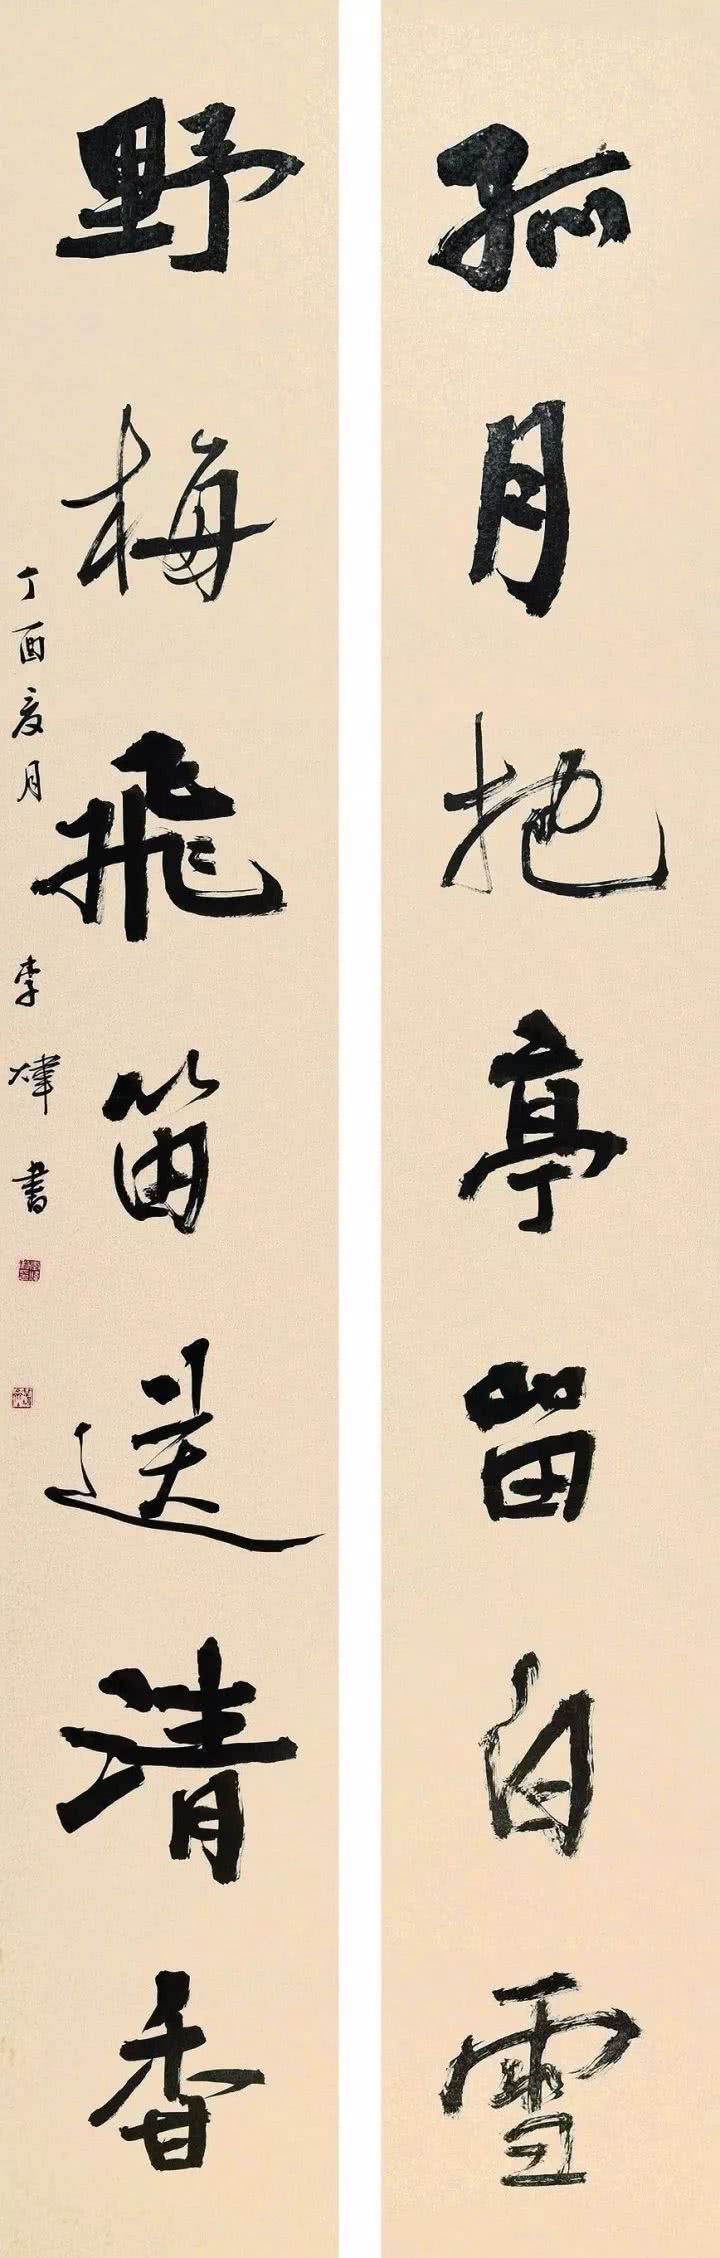 孤月抱亭留白雪
野梅飛笛送清香
丁酉夏月 李 書